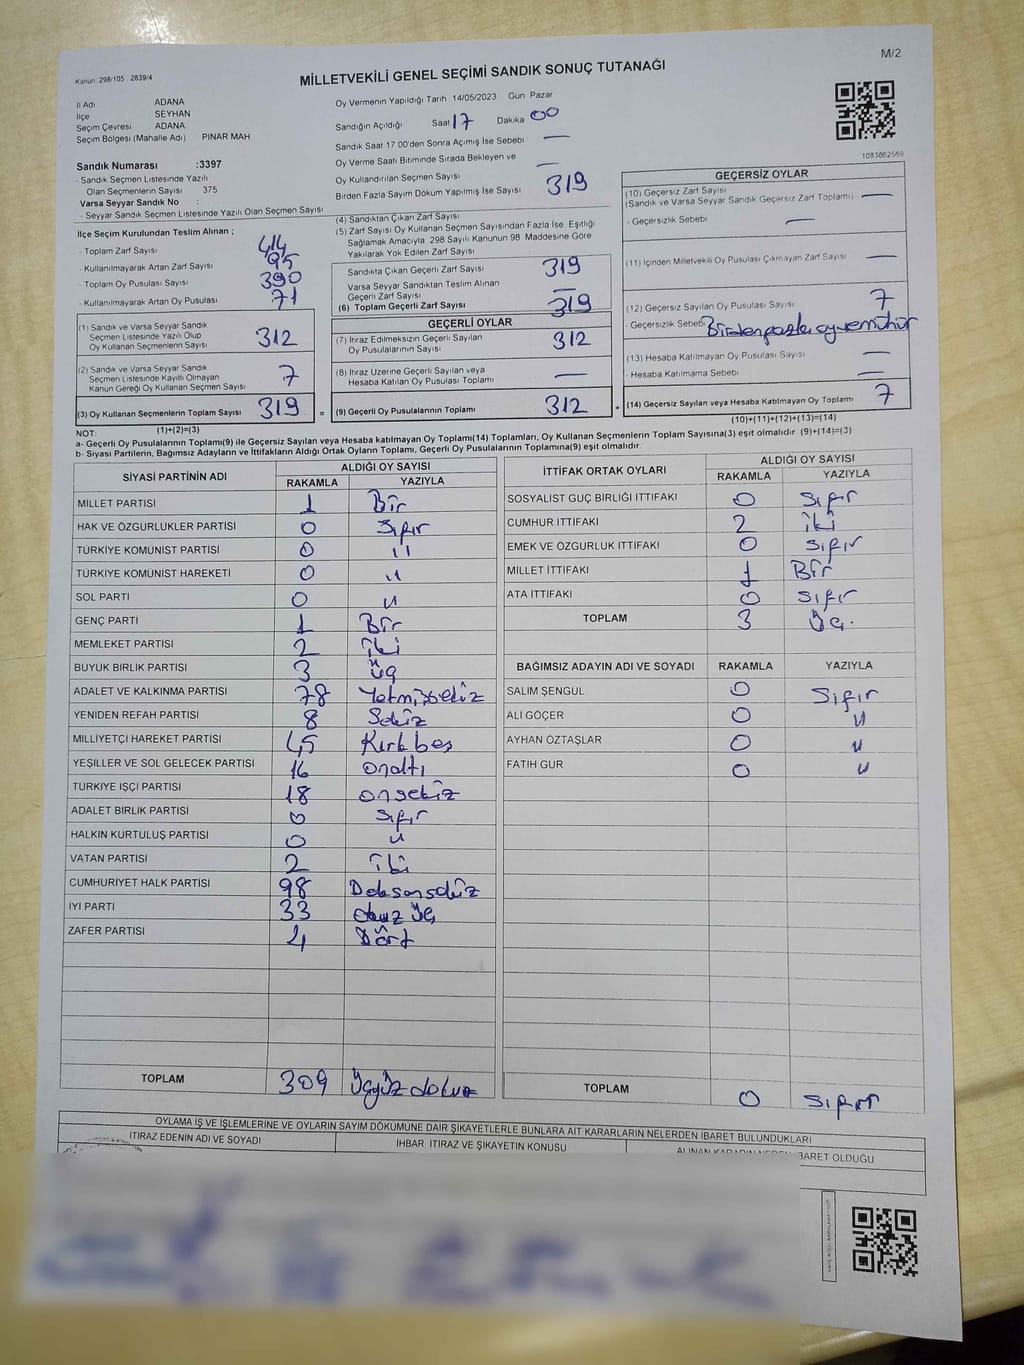 Kanun: 298/105 2839/4
M/2
MİLLETVEKİLİ GENEL SEÇİMİ SANDIK SONUÇ TUTANAĞI
İl Adı ADANA
İlçe SEYHAN
Seçim Çevresi ADANA
Seçim Bölgesi (Mahalle Adı) PINAR MAH
Sandık Numarası :3397
- Sandık Seçmen Listesinde Yazılı
Olan Seçmenlerin Sayısı 375
Varsa Seyyar Sandık No :
- Seyyar Sandık Seçmen Listesinde Yazılı Olan Seçmen Sayısı
Oy Vermenin Yapıldığı Tarih 14/05/2023 Gün Pazar
Sandığın Açıldığı Saat 17 Dakika 00
Sandık Saat 17:00'den Sonra Açılmış İse Sebebi —
Oy Verme Saati Bitiminde Sırada Bekleyen ve
Oy Kullandırılan Seçmen Sayısı —
Birden Fazla Sayım Döküm Yapılmış İse Sayısı 319
1083862569
İlçe Seçim Kurulundan Teslim Alınan ;
- Toplam Zarf Sayısı 414
- Kullanılmayarak Artan Zarf Sayısı 95
- Toplam Oy Pusulası Sayısı 390
- Kullanılmayarak Artan Oy Pusulası 71
(1) Sandık ve Varsa Seyyar Sandık
Seçmen Listesinde Yazılı Olup
Oy Kullanan Seçmenlerin Sayısı 312
(2) Sandık ve Varsa Seyyar Sandık
Seçmen Listesinde Kayıtlı Olmayan
Kanun Gereği Oy Kullanan Seçmen Sayısı 7
(3) Oy Kullanan Seçmenlerin Toplam Sayısı 319 =
(4) Sandıktan Çıkan Zarf Sayısı
(5) Zarf Sayısı Oy Kullanan Seçmen Sayısından Fazla İse, Eşitliği
Sağlamak Amacıyla, 298 Sayılı Kanunun 98. Maddesine Göre
Yakılarak Yok Edilen Zarf Sayısı
Sandıkta Çıkan Geçerli Zarf Sayısı 319
Varsa Seyyar Sandıktan Teslim Alınan
Geçerli Zarf Sayısı —
(6) Toplam Geçerli Zarf Sayısı 319
GEÇERLİ OYLAR
(7) İtiraz Edilmeksizin Geçerli Sayılan
Oy Pusulalarının Sayısı 312
(8) İtiraz Üzerine Geçerli Sayılan veya
Hesaba Katılan Oy Pusulası Toplamı —
(9) Geçerli Oy Pusulalarının Toplamı 312 +
GEÇERSİZ OYLAR
(10) Geçersiz Zarf Sayısı
(Sandık ve Varsa Seyyar Sandık Geçersiz Zarf Toplamı) —
- Geçersizlik Sebebi —
(11) İçinden Milletvekili Oy Pusulası Çıkmayan Zarf Sayısı —
(12) Geçersiz Sayılan Oy Pusulası Sayısı 7
- Geçersizlik Sebebi Birden fazla oy ve mühür
(13) Hesaba Katılmayan Oy Pusulası Sayısı —
- Hesaba Katılmama Sebebi —
(14) Geçersiz Sayılan veya Hesaba Katılmayan Oy Toplamı 7
(1)+(2)=(3)
(10)+(11)+(12)+(13)=(14)
NOT:
a- Geçerli Oy Pusulalarının Toplamı(9) ile Geçersiz Sayılan veya Hesaba katılmayan Oy Toplamı(14) Toplamları, Oy Kullanan Seçmenlerin Toplam Sayısına(3) eşit olmalıdır. (9)+(14)=(3)
b- Siyasi Partilerin, Bağımsız Adayların ve İttifakların Aldığı Ortak Oyların Toplamı, Geçerli Oy Pusulalarının Toplamına(9) eşit olmalıdır.
SİYASİ PARTİNİN ADI ALDIĞI OY SAYISI
RAKAMLA YAZIYLA
MİLLET PARTİSİ 1 Bir
HAK VE ÖZGÜRLÜKLER PARTİSİ 0 Sıfır
TÜRKİYE KOMÜNİST PARTİSİ 0 "
TÜRKİYE KOMÜNİST HAREKETİ 0 "
SOL PARTİ 0 "
GENÇ PARTİ 1 Bir
MEMLEKET PARTİSİ 2 iki
BÜYÜK BİRLİK PARTİSİ 3 üç
ADALET VE KALKINMA PARTİSİ 78 Yetmişsekiz
YENİDEN REFAH PARTİSİ 8 Sekiz
MİLLİYETÇİ HAREKET PARTİSİ 45 Kırkbeş
YEŞİLLER VE SOL GELECEK PARTİSİ 16 onaltı
TÜRKİYE İŞÇİ PARTİSİ 18 onsekiz
ADALET BİRLİK PARTİSİ 0 Sıfır
HALKIN KURTULUŞ PARTİSİ 0 "
VATAN PARTİSİ 2 iki
CUMHURİYET HALK PARTİSİ 98 Doksansekiz
İYİ PARTİ 33 otuz üç
ZAFER PARTİSİ 4 Dört
TOPLAM 309 üçyüz dokuz
İTTİFAK ORTAK OYLARI ALDIĞI OY SAYISI
RAKAMLA YAZIYLA
SOSYALİST GÜÇ BİRLİĞİ İTTİFAKI 0 Sıfır
CUMHUR İTTİFAKI 2 iki
EMEK VE ÖZGÜRLÜK İTTİFAKI 0 Sıfır
MİLLET İTTİFAKI 1 Bir
ATA İTTİFAKI 0 Sıfır
TOPLAM 3 üç.
BAĞIMSIZ ADAYIN ADI VE SOYADI RAKAMLA YAZIYLA
SALİM ŞENGÜL 0 Sıfır
ALİ GÖÇER 0 "
AYHAN ÖZTAŞLAR 0 "
FATİH GÜR 0 "
TOPLAM 0 Sıfır
OYLAMA İŞ VE İŞLEMLERİNE VE OYLARIN SAYIM DÖKÜMÜNE DAİR ŞİKAYETLERLE BUNLARA AİT KARARLARIN NELERDEN İBARET BULUNDUKLARI
İTİRAZ EDENİN ADI VE SOYADI İHBAR, İTİRAZ VE ŞİKAYETİN KONUSU ALINAN KARARIN NEDEN İBARET OLDUĞU